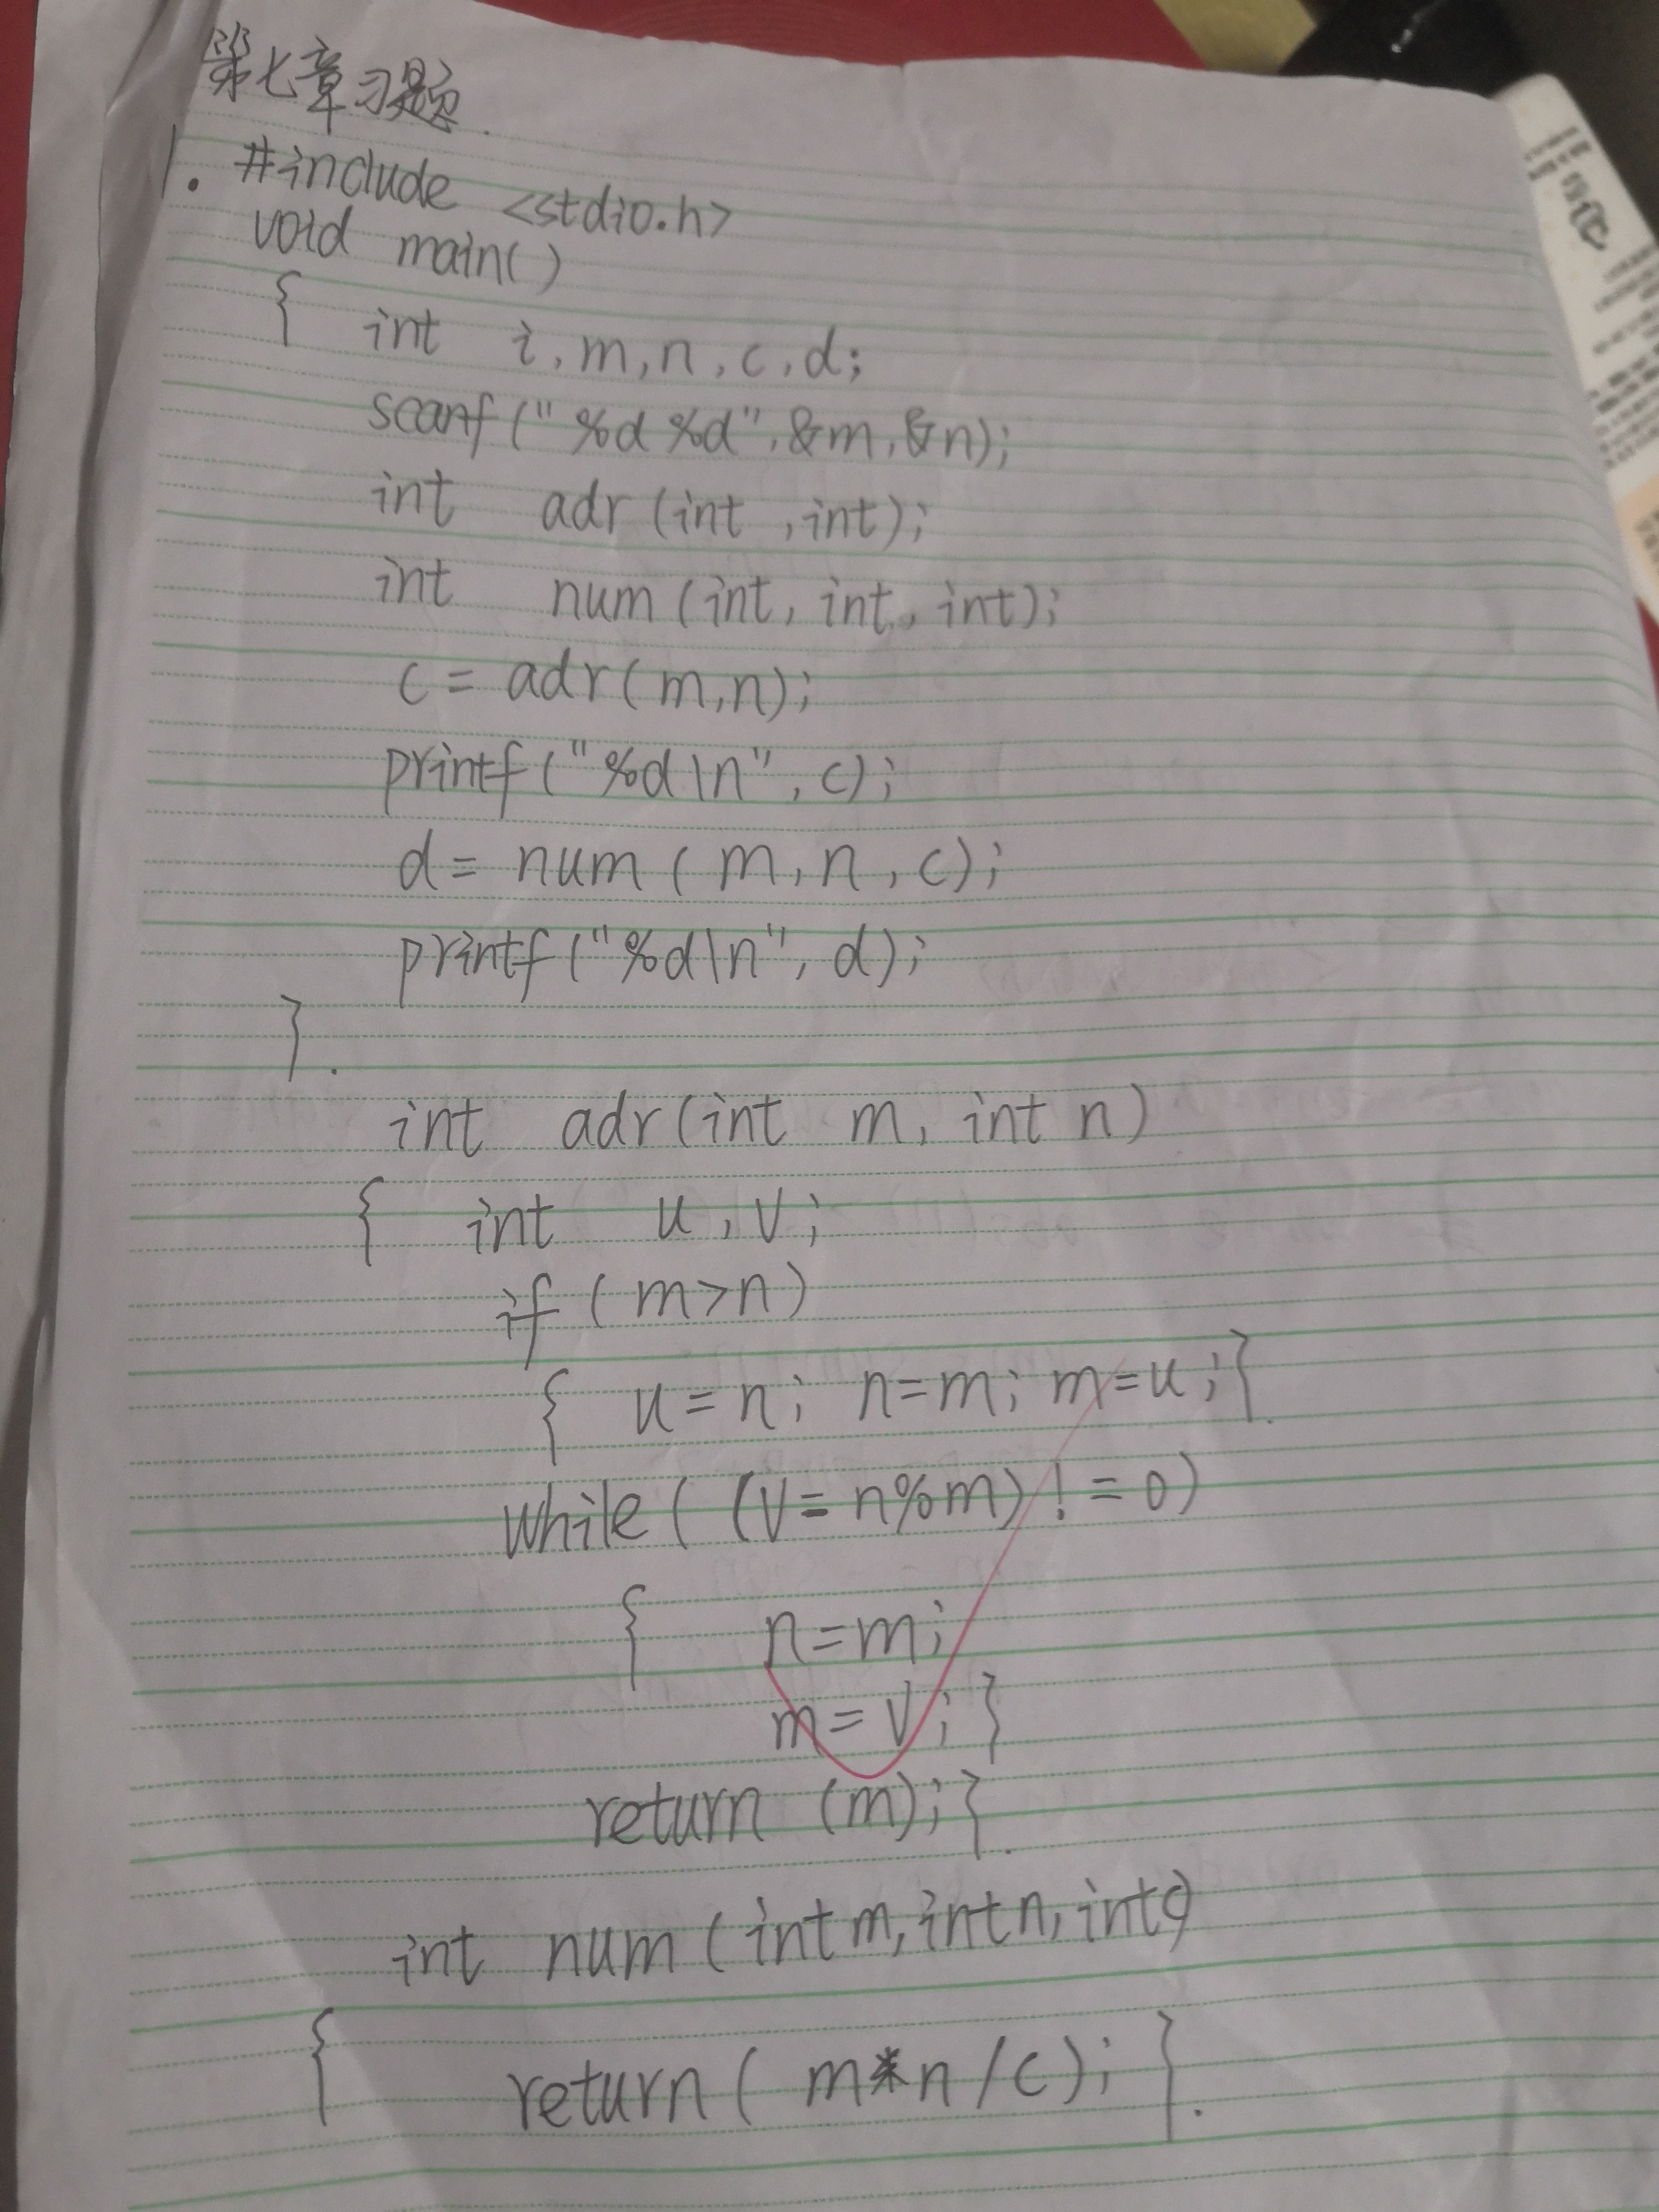 第七章习题.
1. #include <stdio.h>
void main()
{ int i,m,n,c,d;
scanf("%d %d",&m,&n);
int adr(int ,int);
int num(int, int, int);
c = adr(m,n);
printf("%d\n", c);
d = num(m,n,c);
printf("%d\n", d);
}.
int adr(int m, int n)
{ int u,v;
if(m>n)
{ u=n; n=m; m=u;}.
while((v=n%m)!=0)
{ n=m;
m=v;}
return (m);}.
int num(int m,int n,int c)
{ return(m*n/c);}.